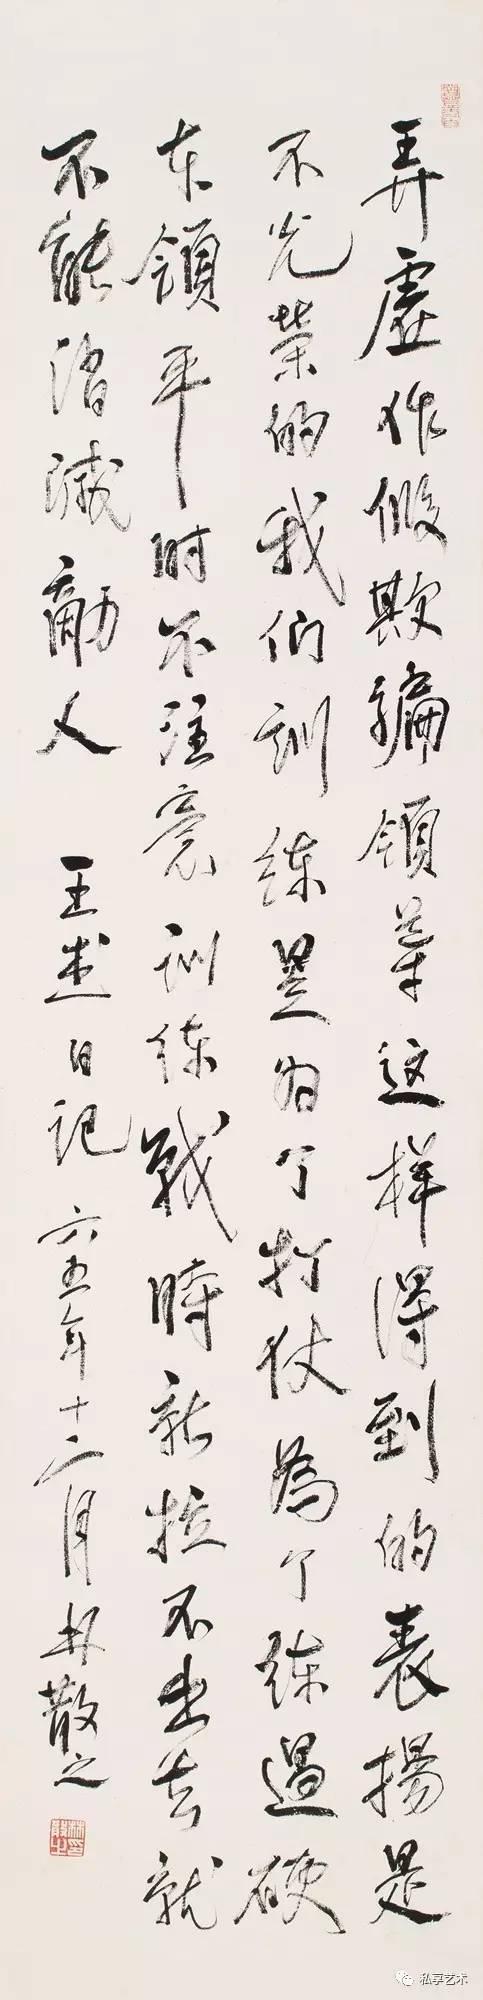 弄虛作假欺騙領导这样得到的表揚是
不光荣的我们訓练是为了打仗為了练過硬
本領平时不注意訓练戰時就拉不出去就
不能消滅敵人 王杰日記 六五年十二月林散之
私享艺术